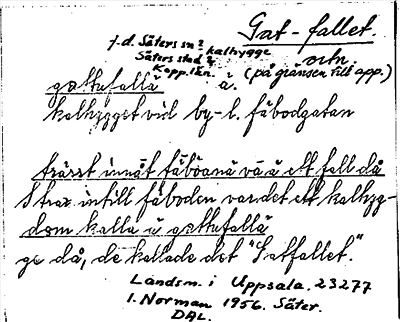 Gat-fallet.
f.d. Säters sn? kalhygge
Säters stad? ortn.
Kopp. län. (på gränsen till app.)
gattufallä ä.
kalhygget vid by-l. fäbodgatan
träxt innåt fäboänä vä ä ett fall då
Strax intill fäboden var det ett kalhyg-
dom kalla ä gattufallä
ge då, de kallade det "Gatfallet."
Landsm. i Uppsala. 23277
I. Norman 1956. Säter.
DAL.